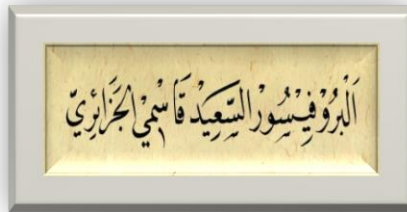 اَلْبْرُوْفِيْسُوْر السَّعِيْدْ قَاسْمِيْ الجَزَائِرِيّ